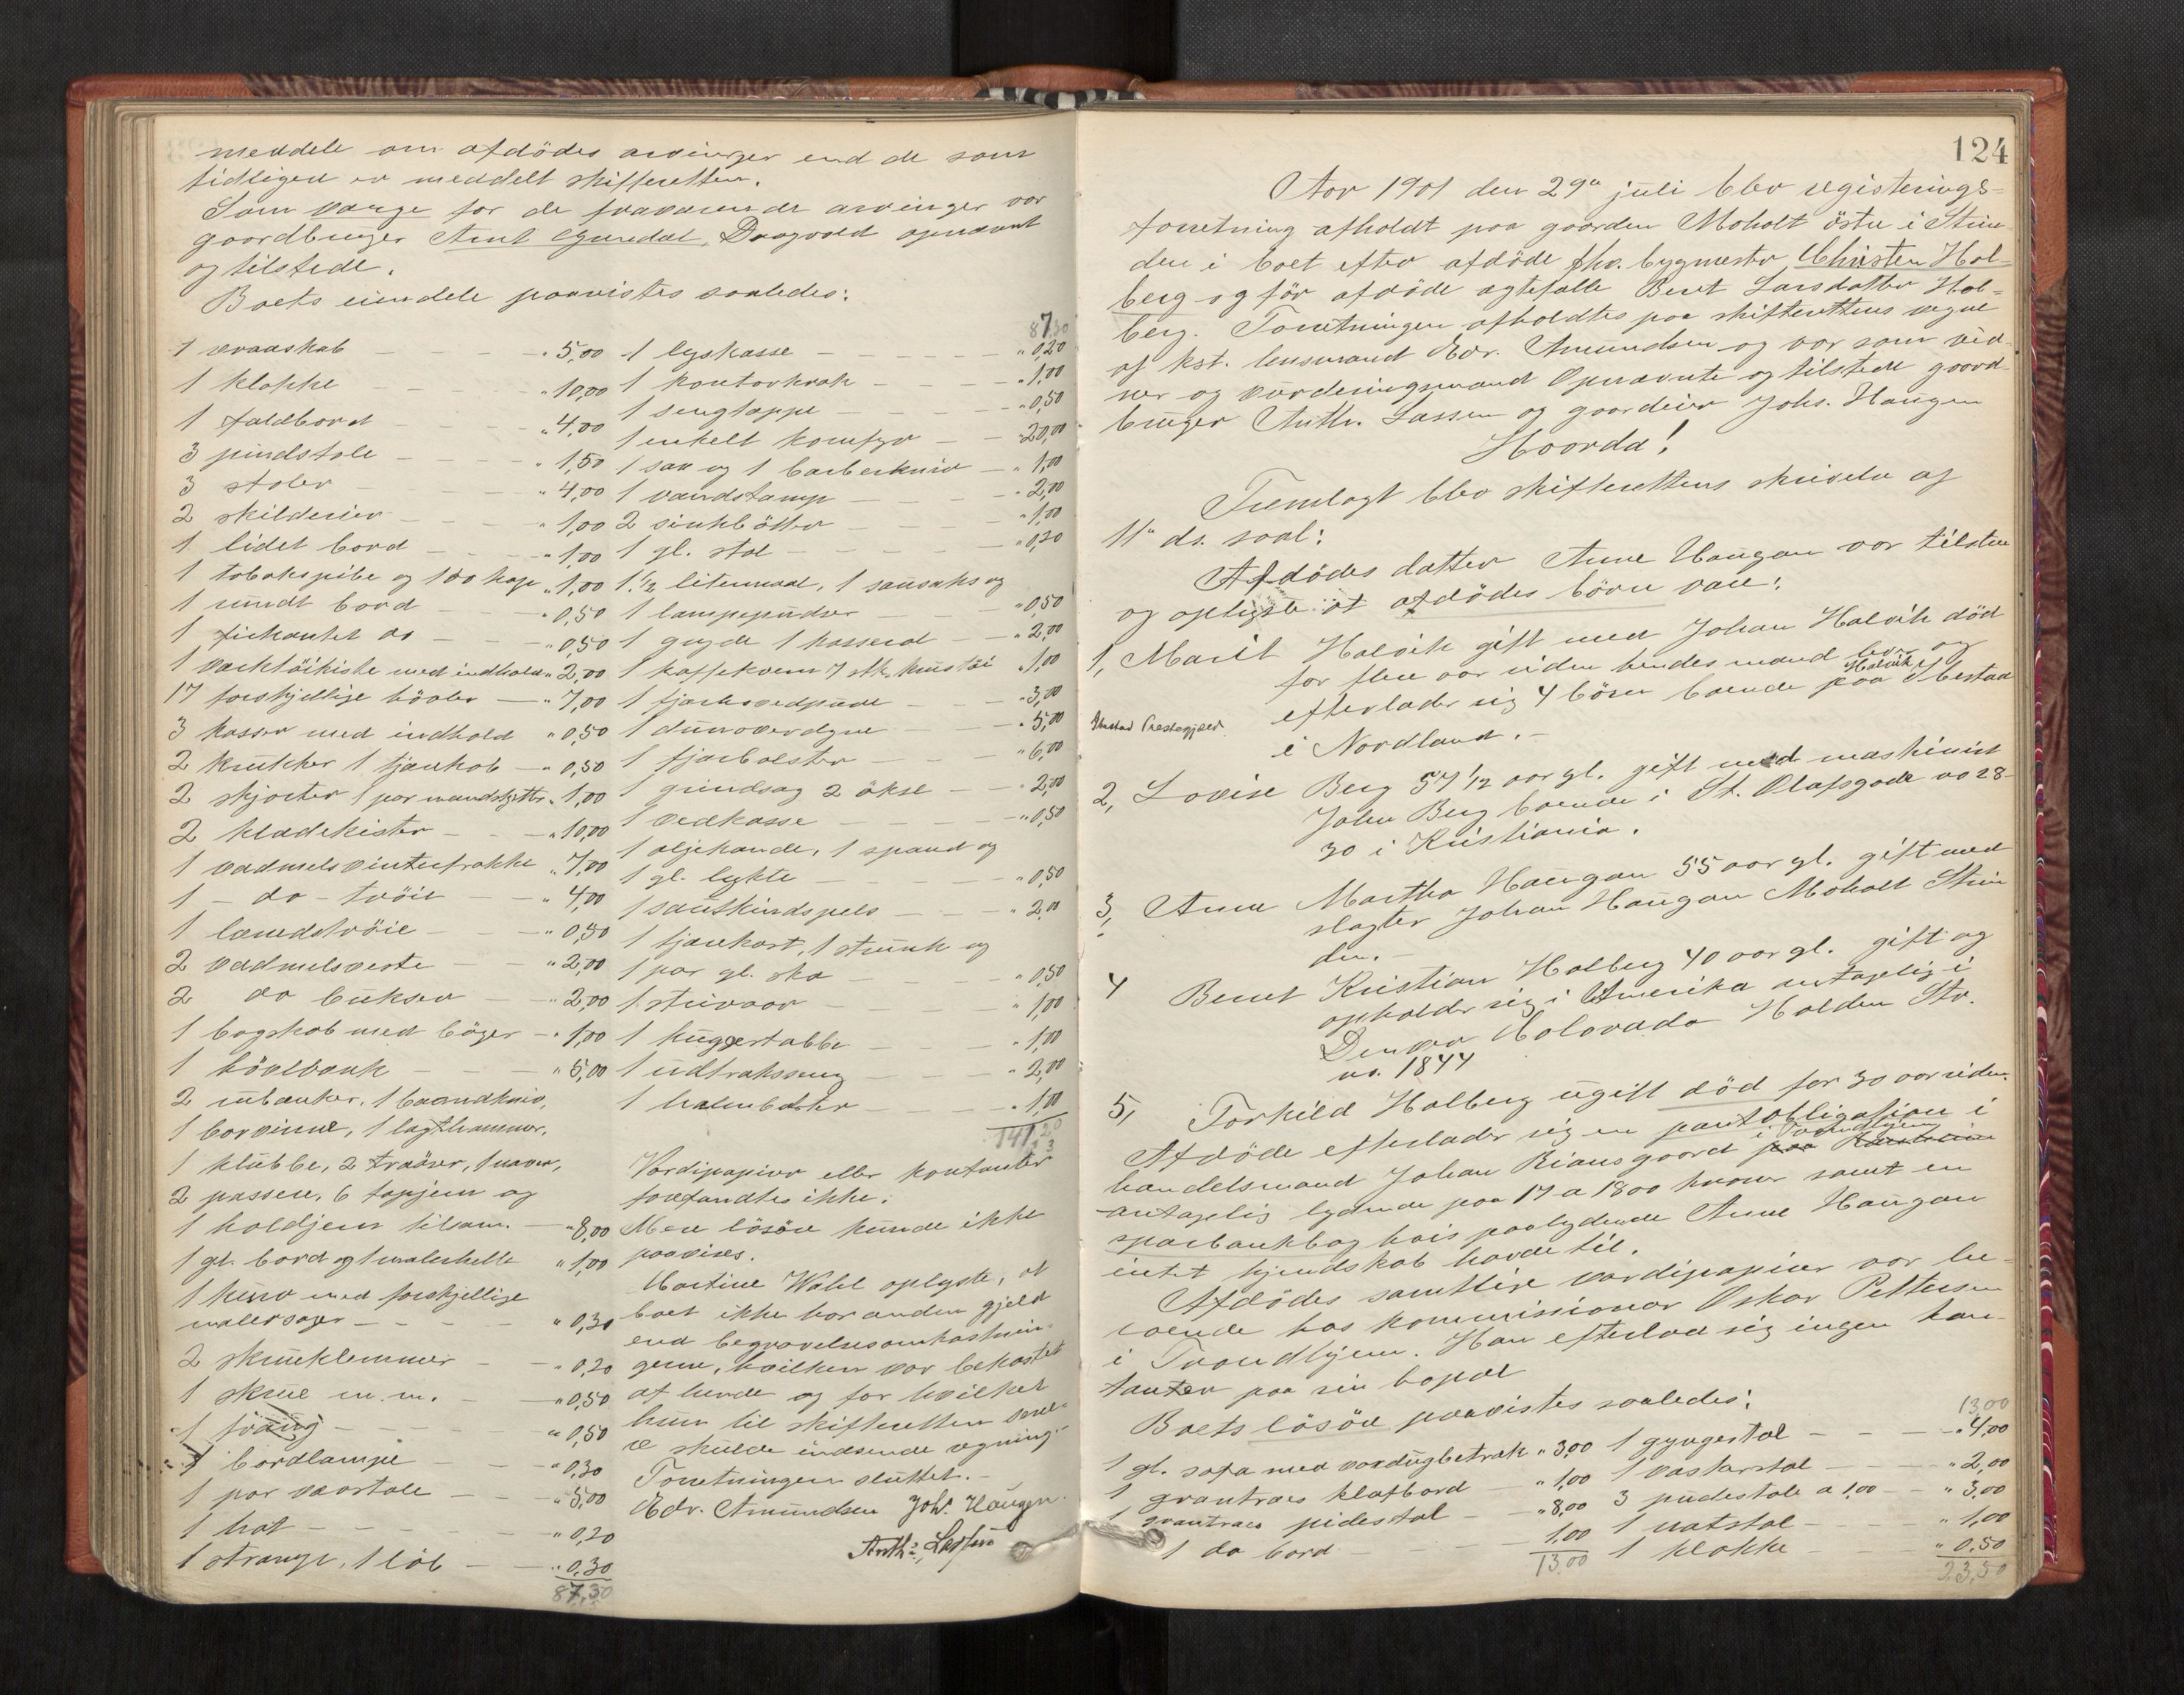 meddele om afdödes arvinger end de som
tidligere er meddelt skifteretten.
Som værge for de fraværende arvinger var
gaardbruger Arnt Dragvold opnævnt
og tilstede.
Boets eiendele paavistes saaledes:
1 vraaskab - - - " 5,00
1 klokke - - - " 10,00
1 faldbord - - - " 4,00
3 pindstole - - - " 1,50
3 stoler - - - " 4,00
2 skilderier - - - " 1,00
1 lidet bord - - - " 1,00
1 tobakspibe og 100 kap " 1,00
1 rundt bord - - - " 0,50
1 firkantet do - - - " 0,50
1 værktöikiste med indhold " 2,00
17 forskjellige hövler - " 7,00
3 kasser med indhold " 0,50
2 krukker 1 tjærekob - " 0,50
2 skjorter 1 par mandskjorter " 1,00
2 klædekister - - " 10,00
1 vadmelsvinterfrakke " 7,00
1 - do - tröie - - " 4,00
1 lærredströie - - " 0,50
2 vadmelsveste - - " 2,00
2 do bukser - - " 2,00
1 bogskab med böger - " 1,00
1 hövlbænk - - " 5,00
2 baandkniv,
1 borvinne, 1 lægthammer,
1 klubbe, 2 træöxer, 1 naver,
2 passere, 6 tapjern og
1 holdjern tilsam. - " 8,00
1 gl. bord og 1 malerhelle " 1,00
1 kurv med forskjellige
malersager - - - " 0,30
2 skrueklemmer - - " 0,20
1 skrue m.m. - " 0,50
1 - - - " 0,50
1 bordlampe - - " 0,30
1 par - - " 5,00
1 hat - - - " 0,20
1 strange, 1 löb - - " 0,30
87,30
87,30
1 lyskasse - - - " 0,20
1 kontorkrak - - - " 1,00
1 sengtæppe - - - " 0,50
1 enkelt komfyr - - " 20,00
1 sax og 1 barberkniv - " 1,00
1 vandstamp - - - " 2,00
2 sinkbötter - - - " 1,00
1 gl. stol - - - " 0,20
1 1/2 litermaal, 1 sausaks og
1 lampepudser - - " 0,50
1 gryde 1 kasserol - " 2,00
1 kaffekvern 7 stk. krustöi " 1,00
1 fjærhovedpude - - " 3,00
1 dunoverdyne - - " 5,00
1 fjærbolster - - " 6,00
1 grindsag 2 ökse - - " 2,00
1 vedkasse - - - " 0,50
1 oljekande, 1 spand og
1 gl. lykte - - - " 0,50
1 saueskindspels - - " 2,00
1 tjærekost, 1 strunk og
1 par gl. sko - - " 0,50
1 stuvaar - - - " 1,00
1 kuggestabbe - - " 1,00
1 udtræksseng - - " 2,00
1 halmbolster - - " 1,00
141,20
Værdipapirer eller kontanter
forefandtes ikke.
Mere lösöre kunde ikke
paavises.
Martine Wahl oplyste, at
boet ikke har anden gjeld
end begravelsesomkostnin-
gerne, hvilken var bekostet
af hende og for hvilket
hun til skifteretten
skulde indsende regning.
Forretningen sluttet. -
Edv. Amundsen Joh. Haugen.
Anth. Lassen
124
Aar 1901 den 29de juli blev registrerings-
forretning afholdt paa gaarden Moholt östre i Strin-
den i boet efter afdöde fhv. bygmester Christen Hol-
berg og för afdöde ægtefælle Beret Larsdatter Hol-
berg. Forretningen afholdtes paa skifterettens vegne
af kst. lensmand Edv. Amundsen og var som vid-
ner og vurderingsmænd opnævnte og tilstede gaard-
bruger Anth. Lassen og gaardeier Johs. Haugen
Hvorda!
Fremlagt blev skifterettens skrivelse af
11te ds. saal:
Afdödes datter Anne Haugan var tilstede
og oplyste at afdödes börn vare:
1, Marit Halvik gift med Johan Halvik död
for flere aar siden hendes mand lever og
efterlader sig 4 börn boende paa Halvik i Ibestad
Ibestad Præstegjæld.
i Nordland. -
2, Lovise Berg 57 1/2 aar gl. gift med maskinist
John Berg boende i St. Olafsgade no 28-
30 i Kristiania.
3, Anne Martha Haugan 55 aar gl. gift med
slagter Johan Haugan Moholt Strin
den. -
4 Bernt Kristian Holberg 40 aar gl. gift og
opholder sig i Amerika antagelig i
Denver Colorado Holden Str.
no. 1844
5, Torkild Holberg ugift död for 30 aar siden.
Afdöde efterlader sig en pantobligation i
handelsmand Johan Riansgaard i Trondhjem paa
antagelig lydende paa 17 a 1800 kroner samt en
sparbankbog hvis paalydende Anne Haugan
intet kjendskab havde til.
Afdödes samtlige værdipapirer var be-
roende hos kommissionær Oskar Pettersen
i Trondhjem. Han efterlod sig ingen kon-
tanter paa sin bopæl
Boets lösöre paavistes saaledes:
1 gl. sofa med voxdugbetræk " 3,00
1 grantræes klafbord - " 1,00
1 grantræes pidestal - " 8,00
1 do bord - - 1,00
13,00
13,00
1 gyngestol - - - " 4,00
1 - - " 2,00
3 pudestole a 1,00 - - " 3,00
1 natstol - - " 1,00
1 klokke - - " 0,50
23,50